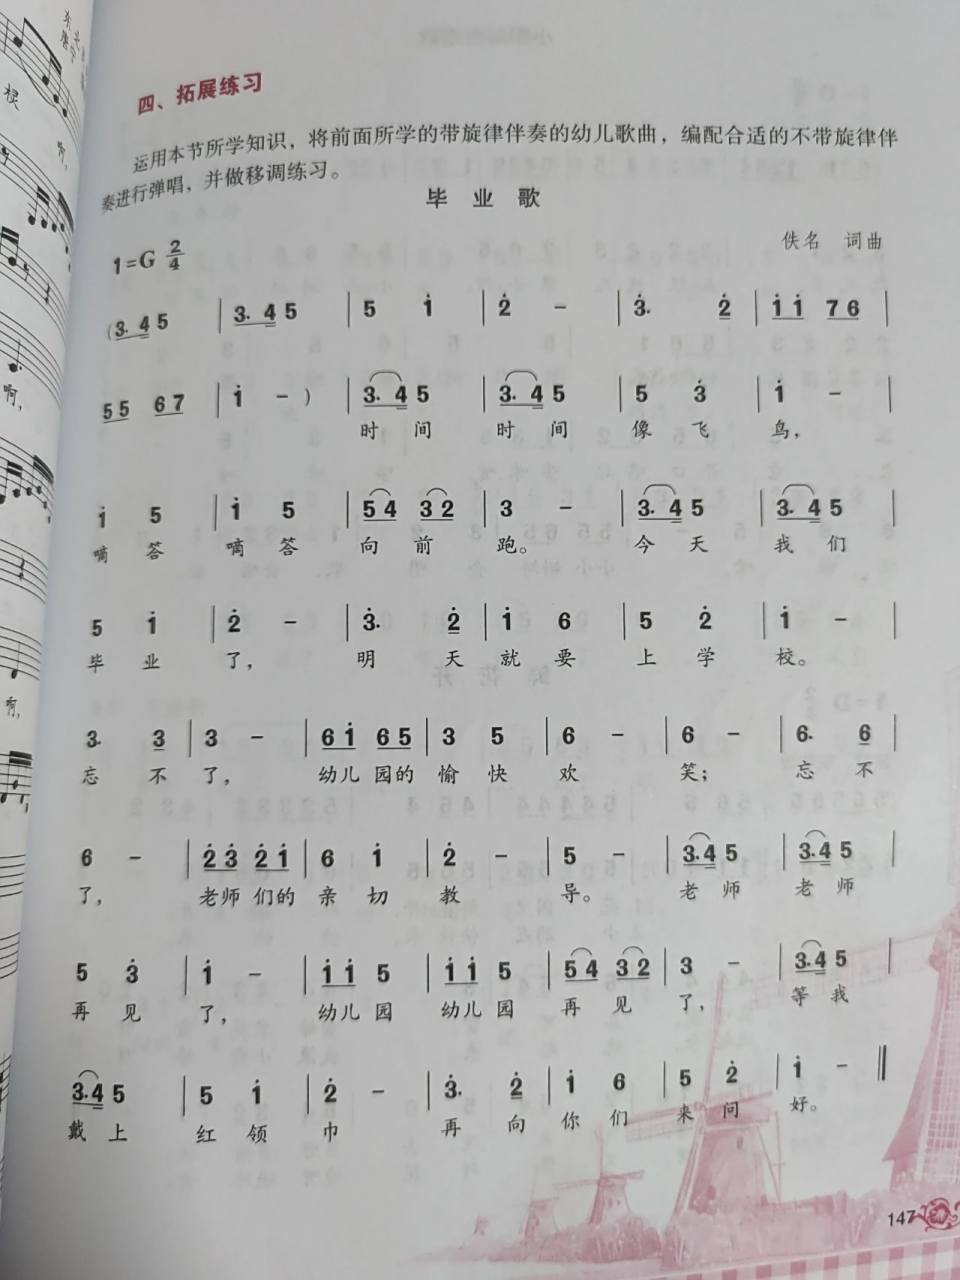 四、拓展练习
运用本节所学知识，将前面所学的带旋律伴奏的幼儿歌曲，编配合适的不带旋律伴
奏进行弹唱，并做移调练习。
毕业歌
佚名 词曲
1=G 2/4
(3. 4 5 | 3. 4 5 | 5 1̇ | 2̇ - | 3̇. 2̇ | 1̇ 1̇ 7 6 |
5 5 6 7 | 1̇ - ) | 3. 4 5 | 3. 4 5 | 5 3̇ | 1̇ - |
时 间 时 间 像 飞 鸟，
1̇ 5 | 1̇ 5 | 5 4 3 2 | 3 - | 3. 4 5 | 3. 4 5 |
嘀 答 嘀 答 向 前 跑。 今 天 我 们
5 1̇ | 2̇ - | 3̇. 2̇ | 1̇ 6 | 5 2̇ | 1̇ - |
毕 业 了， 明 天 就 要 上 学 校。
3. 3 | 3 - | 6 1̇ 6 5 | 3 5 | 6 - | 6 - | 6. 6 |
忘 不 了， 幼儿 园的 愉 快 欢 笑； 忘 不
6 - | 2̇ 3̇ 2̇ 1̇ | 6 1̇ | 2̇ - | 5 - | 3. 4 5 | 3. 4 5 |
了， 老师 们的 亲 切 教 导。 老 师 老 师
5 3̇ | 1̇ - | 1̇ 1̇ 5 | 1̇ 1̇ 5 | 5 4 3 2 | 3 - | 3. 4 5 |
再 见 了， 幼儿 园 幼儿 园 再 见 了， 等 我
3. 4 5 | 5 1̇ | 2̇ - | 3̇. 2̇ | 1̇ 6 | 5 2̇ | 1̇ - ‖
戴 上 红 领 巾 再 向 你 们 来 问 好。
147